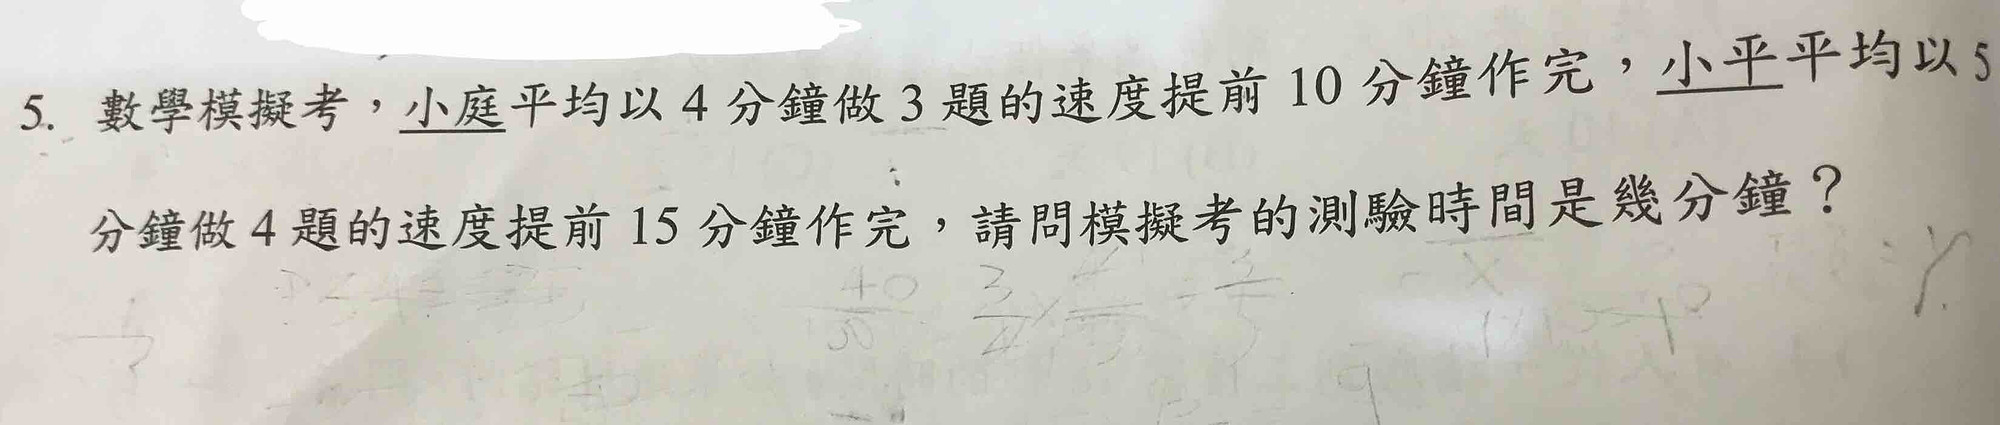 5. 數學模擬考，小庭平均以 4 分鐘做 3 題的速度提前 10 分鐘作完，小平平均以 5
分鐘做 4 題的速度提前 15 分鐘作完，請問模擬考的測驗時間是幾分鐘？